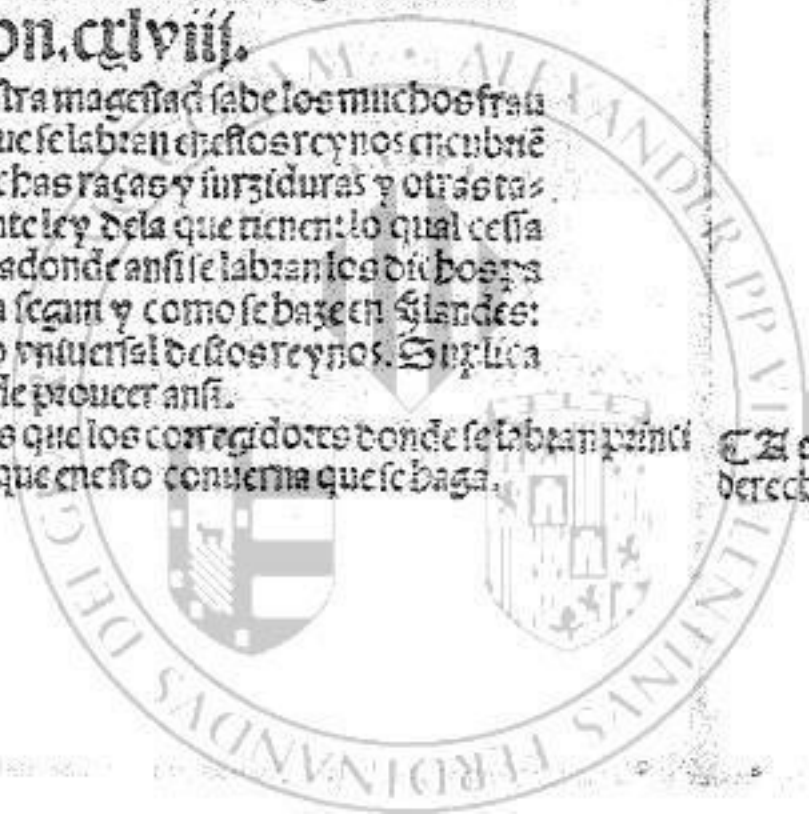 on.cxlviij.
stra magestad sabe los muchos frau
ue se labran enestos reynos encubriē
chas raças y surziduras y otras ta-
nte ley dela que tienen: lo qual cessa
adonde ansi se labran los dichos pa
a segun y como se haze en Flandes:
o vniuersal destos reynos. Suplica
de proueer ansi.
s que los corregidores donde se labran princi
que enesto conuerna que se haga.
CA e
derech
ALEXANDER PP VI
VALENTINVS FERDINANDVS DEI G